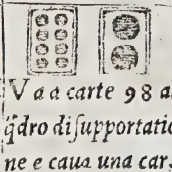 Va a carte 98 a
q̃dro di ſupportatio
ne e caua una car